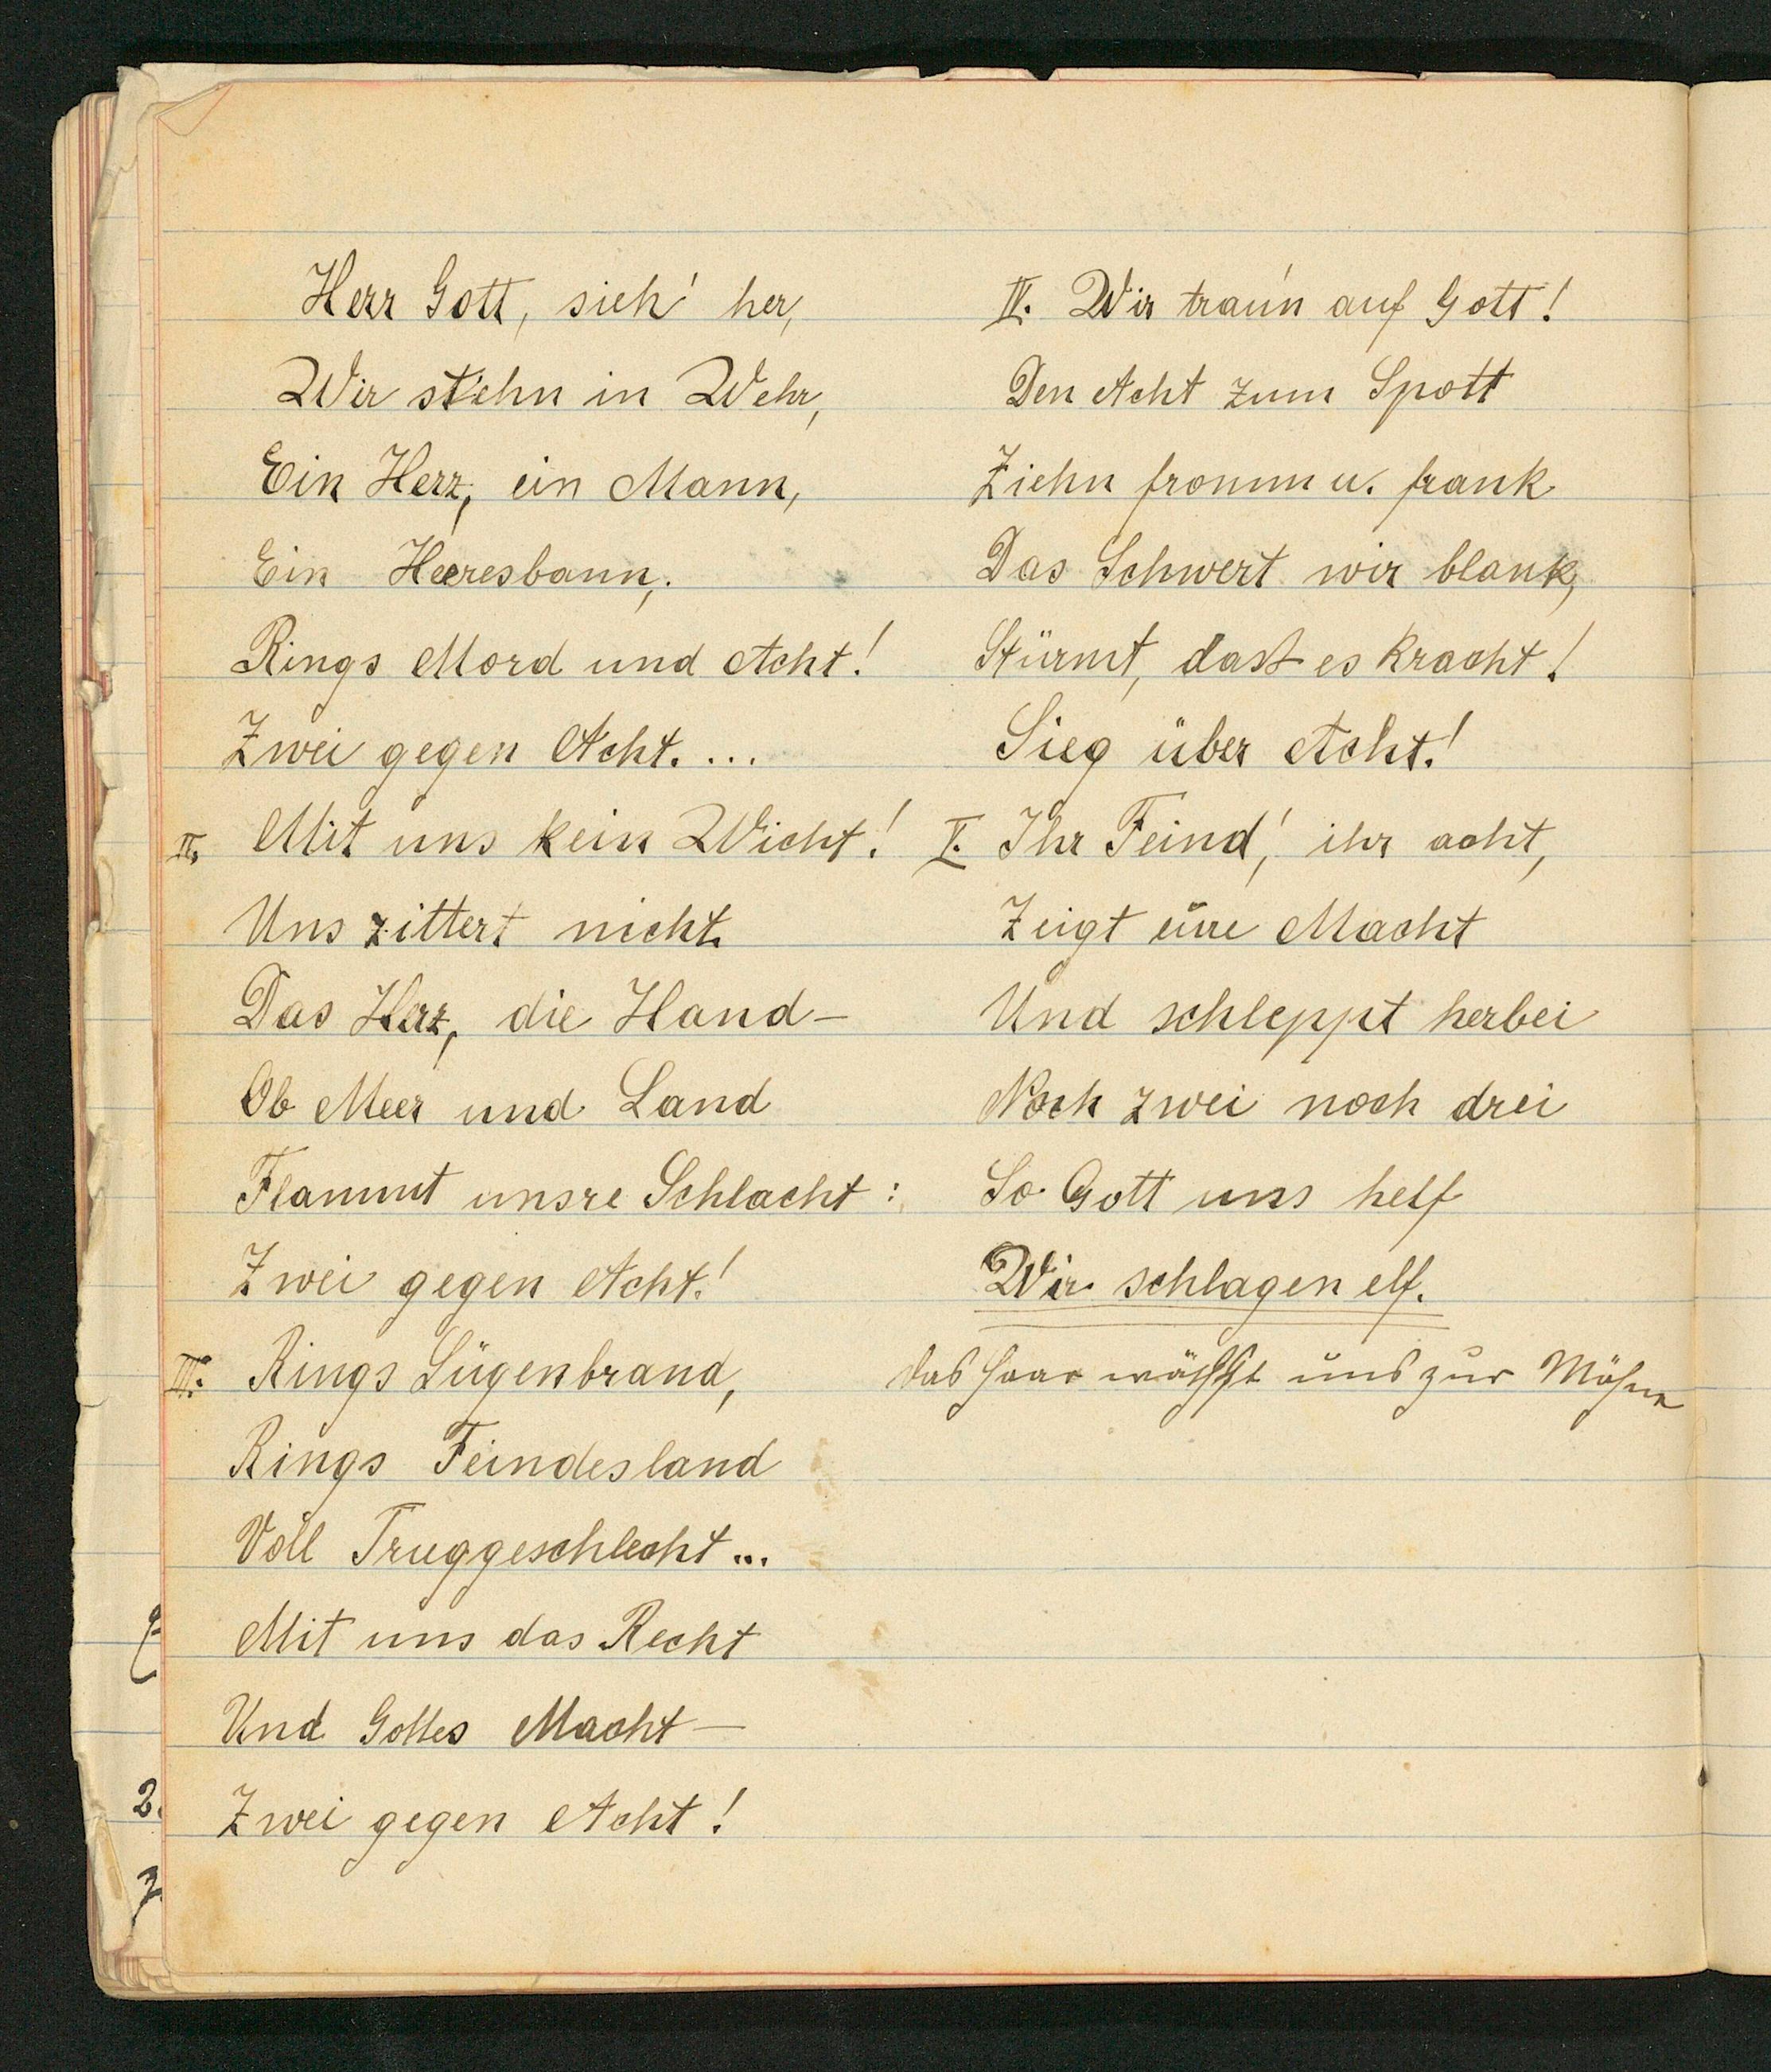 Herr Gott, sieh' her,
Wir steh'n in Wehr,
Ein Herz, ein Mann,
Ein Heeresbann,
Rings Mord und Acht!
Zwei gegen Acht. ...
II. Mit uns kein Wicht!
Uns zittert nicht
Das Herz, die Hand –
Ob Meer und Land
Flammt unsre Schlacht:
Zwei gegen Acht!
III. Rings Lügenbrand,
Rings Feindesland
Voll Truggeschlecht ...
Mit uns das Recht
Und Gottes Macht –
Zwei gegen Acht!
IV. Wir trau'n auf Gott!
Den Acht zum Spott
Ziehn fromm u. frank
Das Schwert wir blank,
Stürmt, daß es kracht!
Sieg über Acht!
V. Ihr Feind', ihr acht,
Zeigt eure Macht
Und schleppt herbei
Noch zwei noch drei
So Gott uns helf
Wir schlagen elf.
Das Haar wächst uns zur Mähne
2.